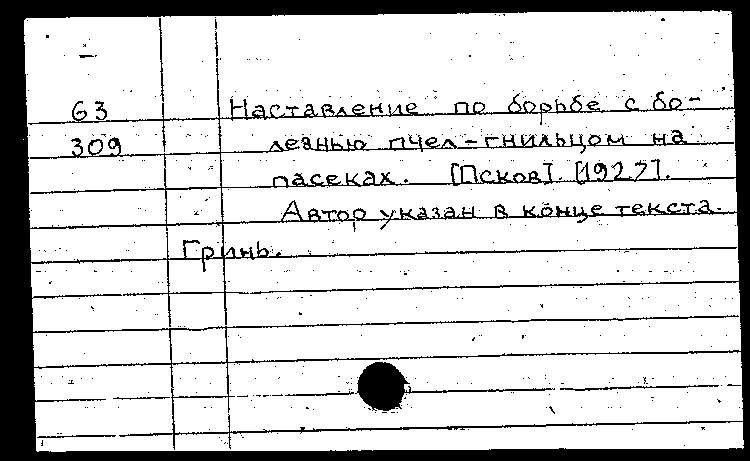 —
63 Наставление по борьбе с бо-
309 лезнью пчел-гнильцом на
пасеках. [Псков]. [1927].
Автор указан в конце текста.
Гринь.